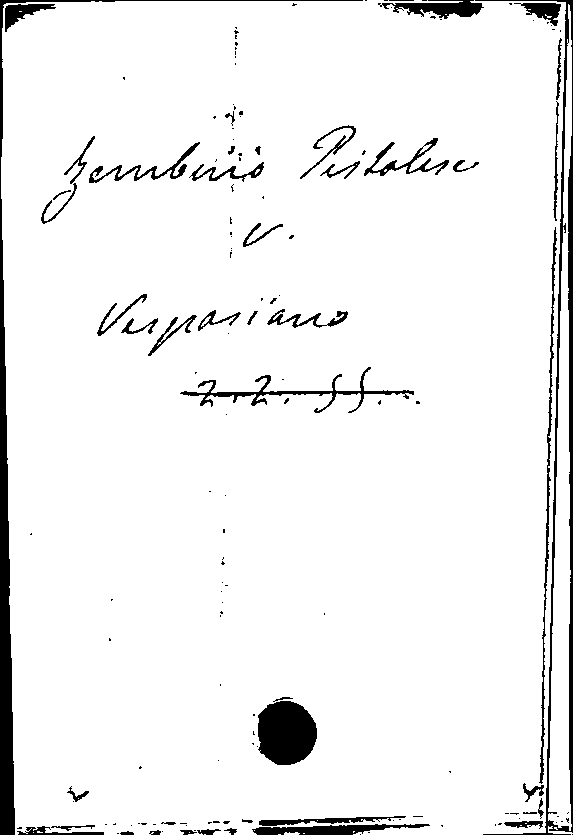 Zembrino Pistolese
v.
Vespasiano
2.2. SS.